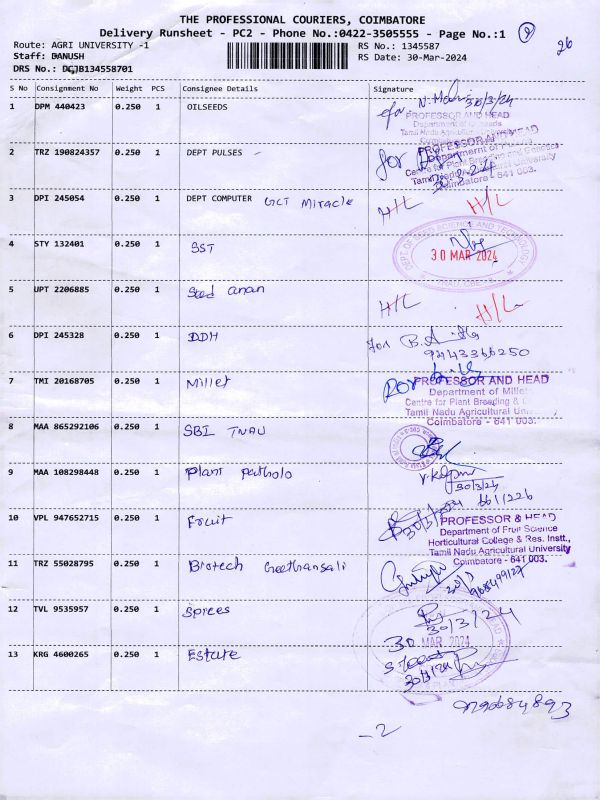 THE PROFESSIONAL COURIERS, COIMBATORE
Delivery Runsheet - PC2 - Phone No.:0422-3505555 - Page No.:1 2 26
Route: AGRI UNIVERSITY -1 RS No.: 1345587
Staff: DANUSH RS Date: 30-Mar-2024
DRS No.: DCJB134558701
S No Consignment No Weight PCS Consignee Details Signature
1 DPM 440423 0.250 1 OILSEEDS for 30/3/24
PROFESSOR AND HEAD
Tamil Nadu Agricultural
2 TRZ 190824357 0.250 1 DEPT PULSES - for
PROFESSOR AND HEAD
Department of Pulses
Centre for Plant Breeding and Genetics
Tamil Nadu Agricultural University
Coimbatore - 641 003.
3 DPI 245054 0.250 1 DEPT COMPUTER GCT Miracle H/L H/L
4 STY 132401 0.250 1 SST
DEPT OF SEED SCIENCE AND TECHNOLOGY
30 MAR 2024
5 UPT 2206885 0.250 1 Seed anan H/L H/L
6 DPI 245328 0.250 1 DDH For B.
7 TMI 20168705 0.250 1 Millet For
PROFESSOR AND HEAD
Department of Millet
Centre for Plant Breeding &
Tamil Nadu Agricultural
Coimbatore - 641 003.
8 MAA 865292106 0.250 1 SBI TNAU
9 MAA 108298448 0.250 1 Plant Patholo
30/3/24
10 VPL 947652715 0.250 1 Fruit 661226
PROFESSOR & HEAD
Department of Fruit Science
Horticultural College & Res. Instt.,
Tamil Nadu Agricultural University
Coimbatore - 641 003.
11 TRZ 55028795 0.250 1 Biotech Geethansali
12 TVL 9535957 0.250 1 Spices
30/3/24
30 MAR 2024
13 KRG 4600265 0.250 1 Estate
30/3/24
-2